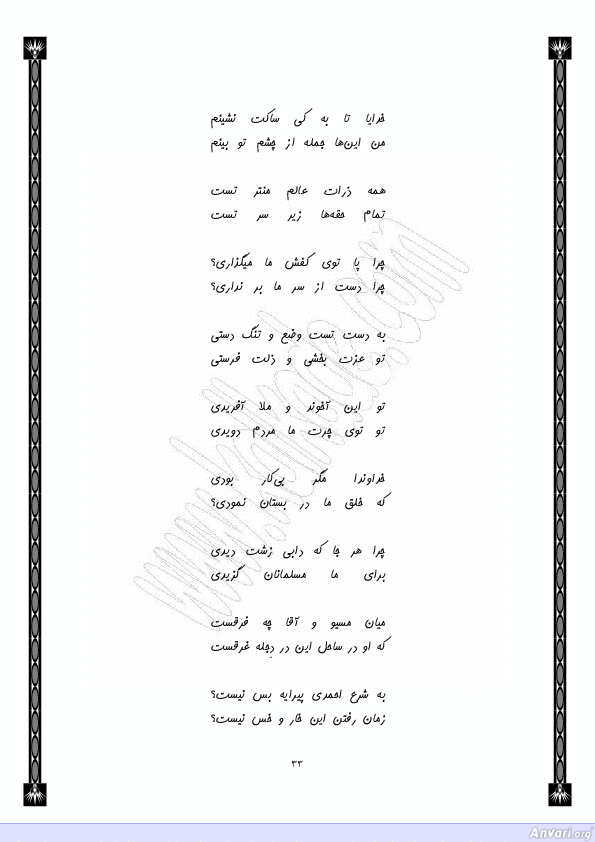 خدایا تا به کی ساکت نشینم
من این‌ها جمله از چشم تو بینم
همه ذرات عالم منتر تست
تمام حقه‌ها زیر سر تست
چرا پا توی کفش ما میگذاری؟
چرا دست از سر ما بر نداری؟
به دست تست وضع و تنگ دستی
تو عزت بخشی و ذلت فرستی
تو این آخوند و ملا آفریدی
تو توی چرت ما مردم دویدی
خداوندا مگر بی‌کار بودی
که خلق ما در بستان نمودی؟
چرا هر جا که دابی زشت دیدی
برای ما مسلمانان گزیدی
میان مسیو و آقا چه فرقست
که او در ساحل این در دجله غرقست
به شرع احمدی پیرایه بس نیست؟
زمان رفتن این خار و خس نیست؟
۳۳
www.KetabFarsi.com
Anvari.org